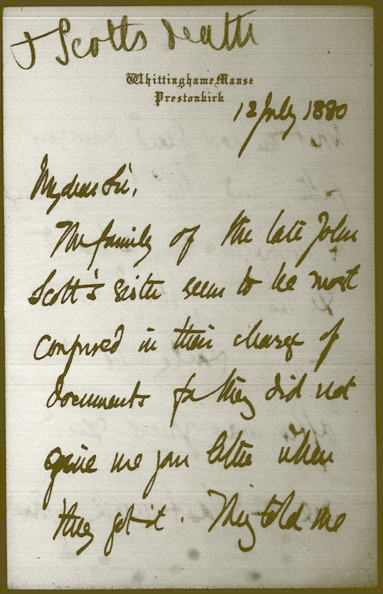 J Scotts death
Whittinghame Manse
Prestonkirk
12 July 1880
My dear Sir,
The family of the late John
Scott's sister seem to be most
confused in their charge of
documents for they did not
give me your letter when
they got it. They told me